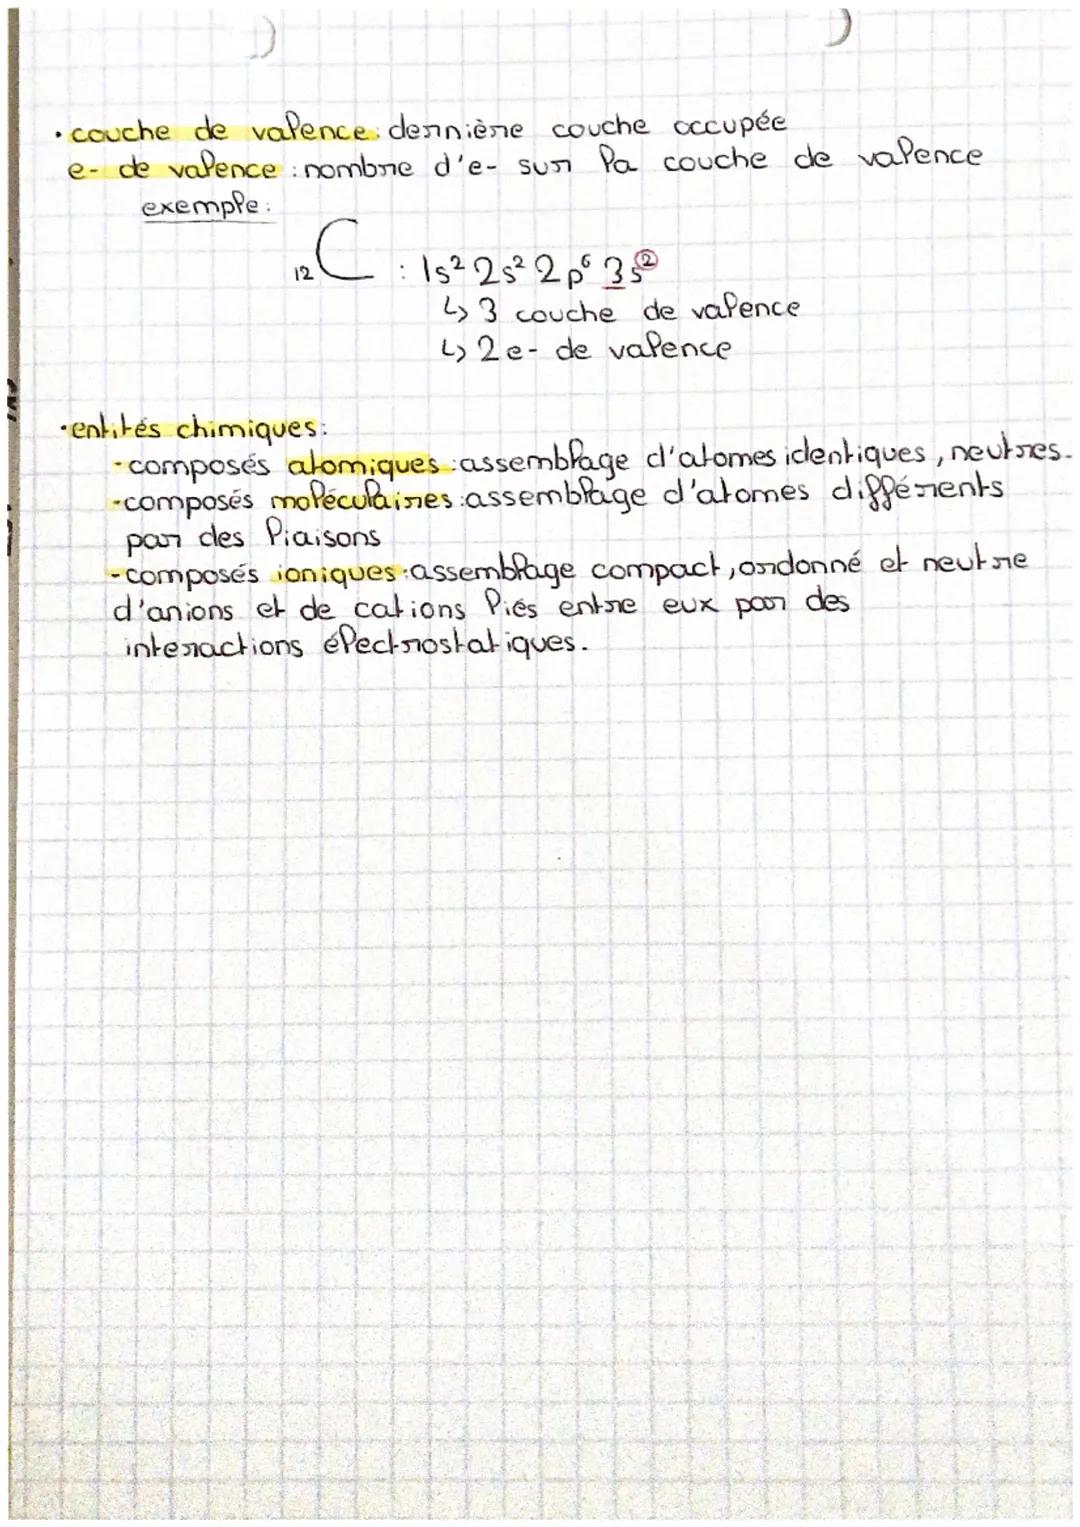 • couche de valence: dernière couche occupée
e- de valence : nombre d'e- sur la couche de valence
exemple:
₁₂C : 1s² 2s² 2p⁶ 3s²
↳ 3 couche de valence
↳ 2 e- de valence
• entités chimiques:
- composés atomiques : assemblage d'atomes identiques, neutres.
- composés moléculaires : assemblage d'atomes différents
par des liaisons
- composés ioniques : assemblage compact, ordonné et neutre
d'anions et de cations liés entre eux par des
interactions électrostatiques.